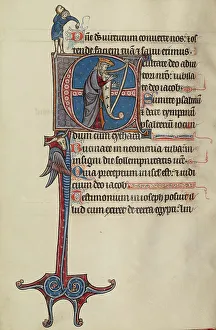 Deus virtutum converte nos: et os
tende faciem tuã & salvi erimus
Exultate deo adiu
tori nostro: iubila
te deo iacob
Sumite psalmũ
et date tympanum
psalterium iocun
dum cum cythara
Buccinate in neomenia tuba: in
insigni die sollempnitatis
Quia preceptum in isrl est: et iudi
cium deo iacob
Testimonium in ioseph posuit il
lud cum exiret de terra egypti: lin